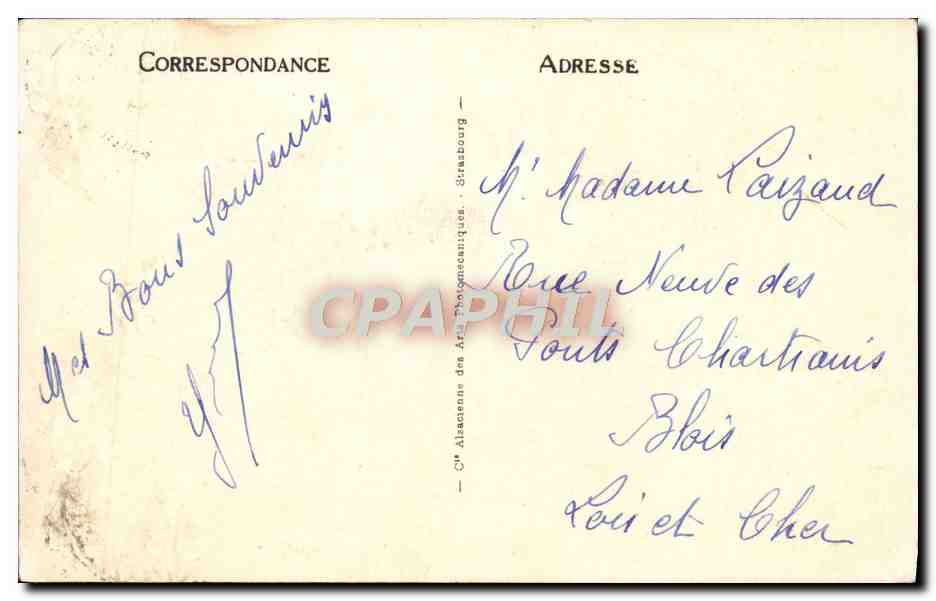 CORRESPONDANCE
Mes Bons Souvenirs
ADRESSE
Mr Madame Paizaud
Rue Neuve des
Ponts Chartrains
Blois
Loir et Cher
— Cie Alsacienne des Arts Photomécaniques. - Strasbourg —
CPAPHIL